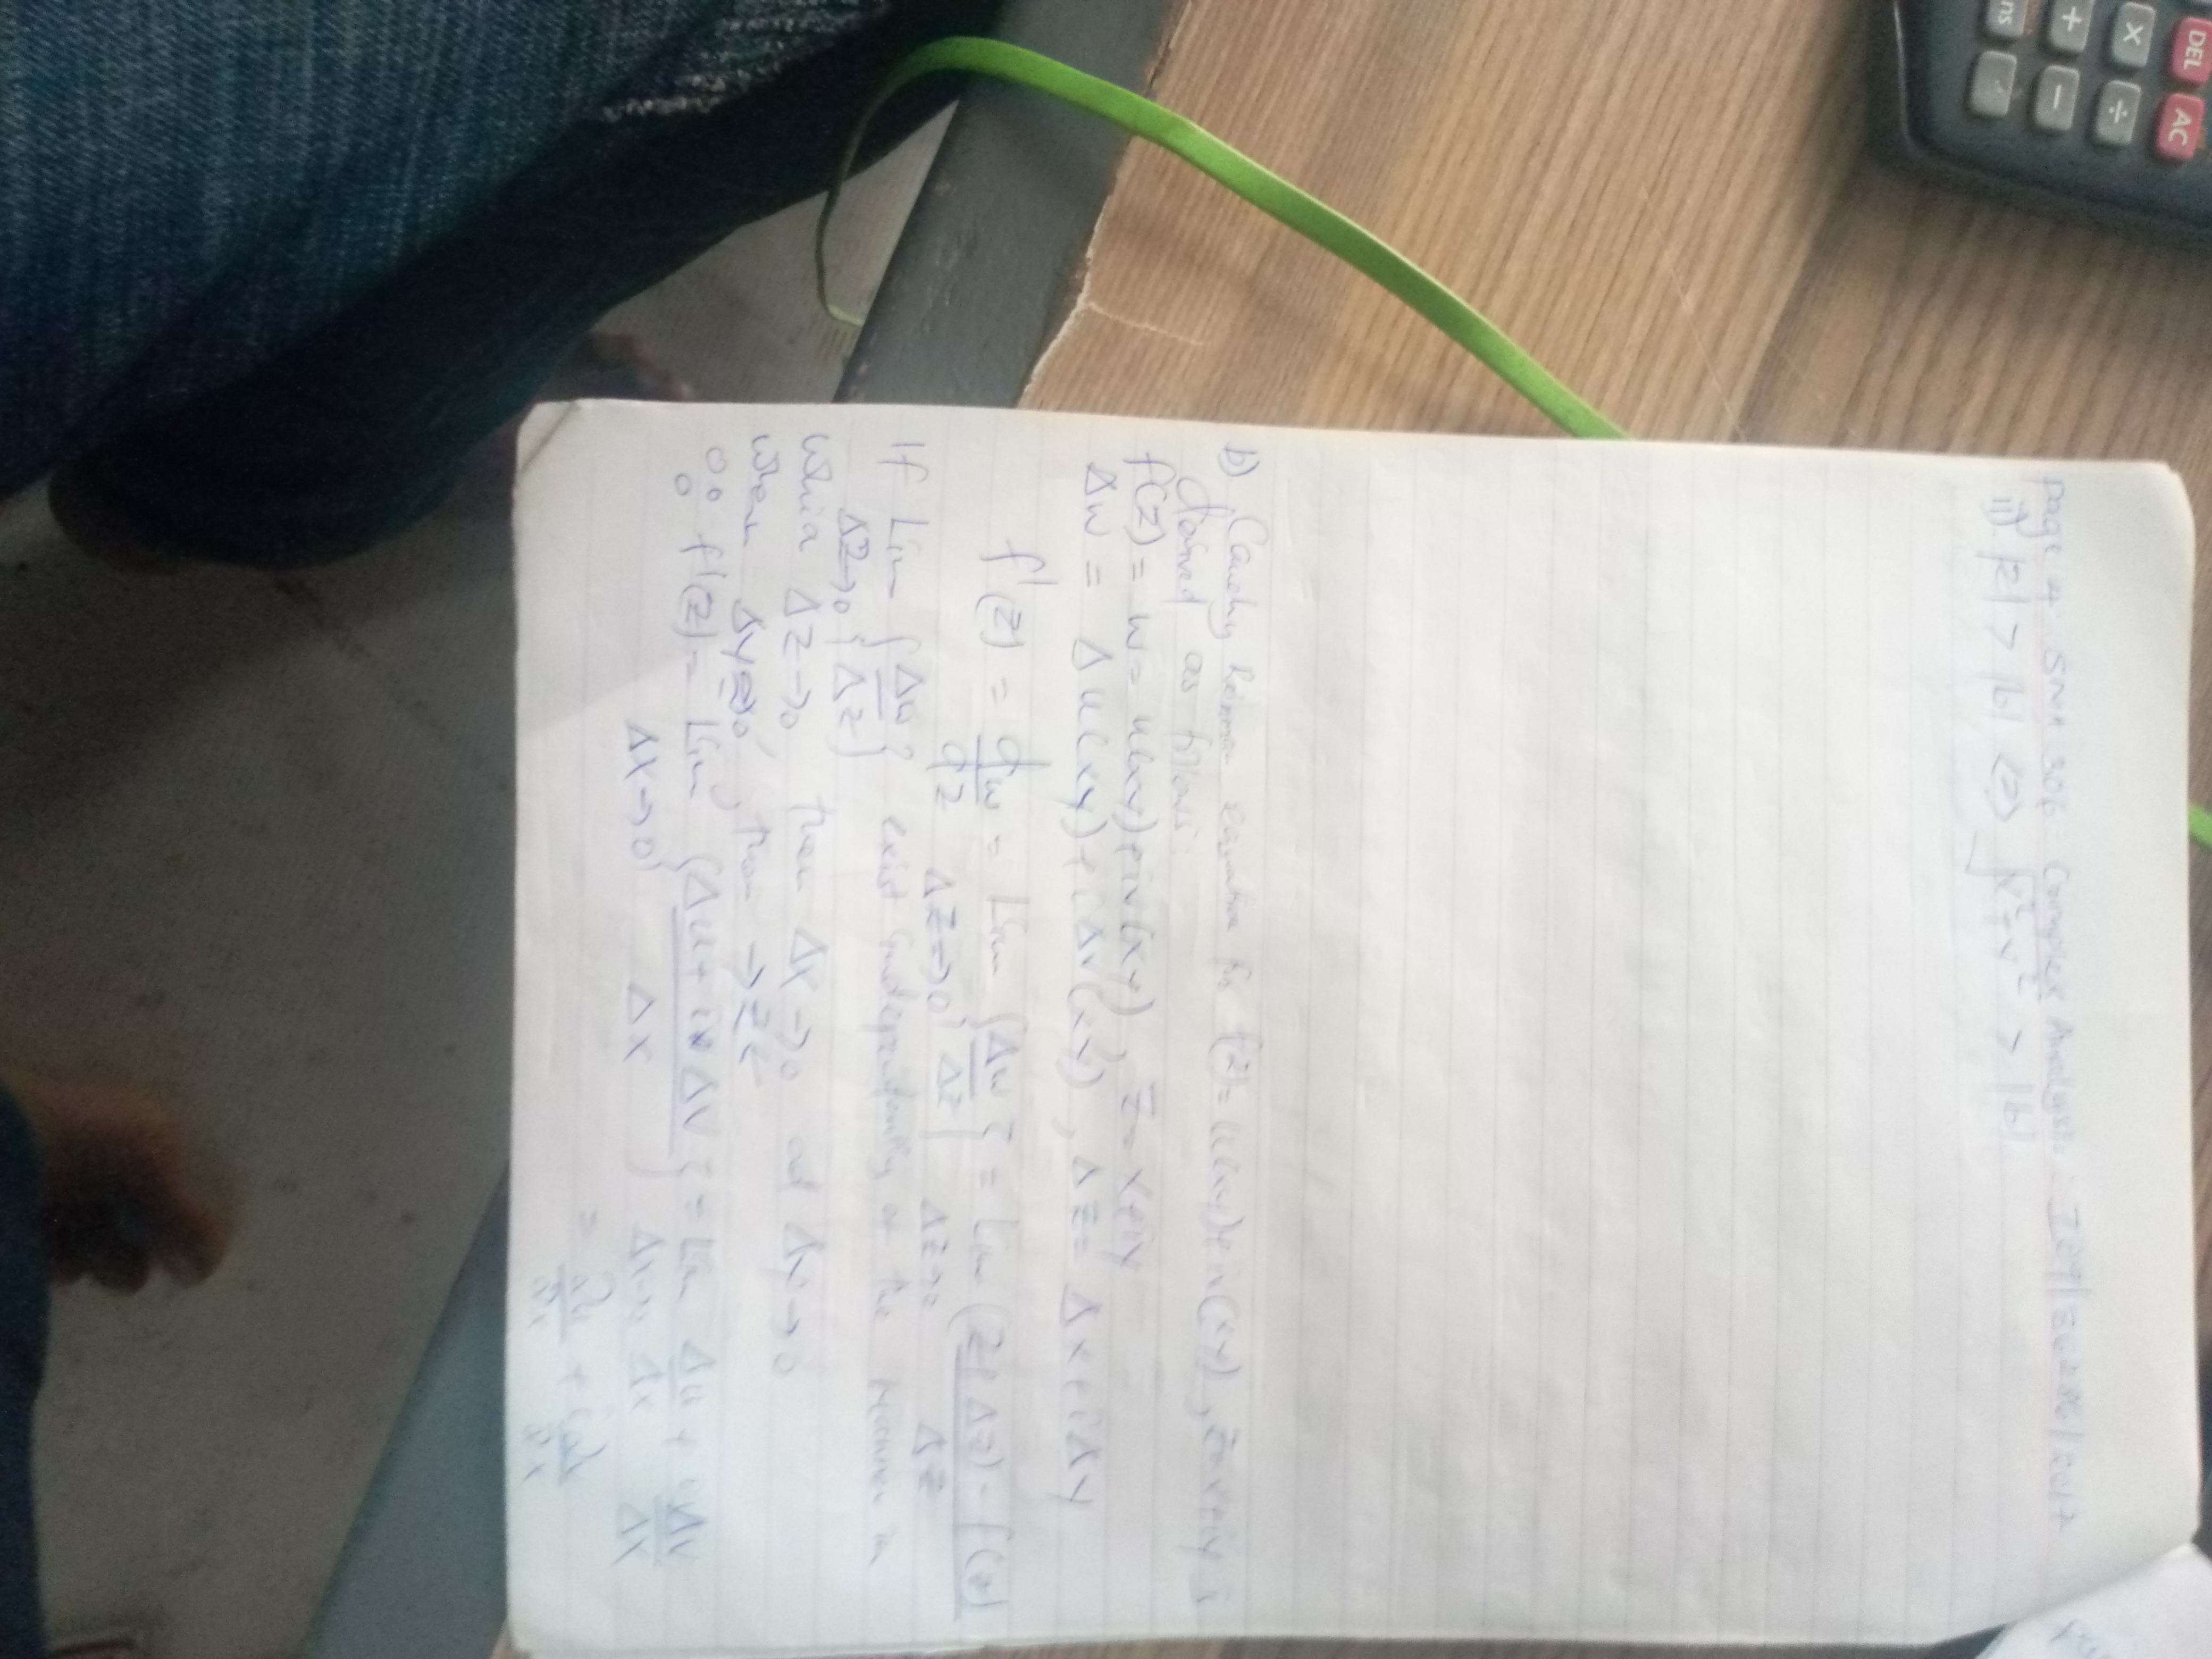 page 4 SMA 306: Complex Analysis:
ii) |z| > |b| <=> √x²+y² > |b|
b) Cauchy Rieman equation for f(z) = u(xy)+iv(xy), z=x+iy is
defined as follows:
f(z) = w = u(xy)+iv(xy), z=x+iy
Δw = Δu(xy)+iΔv(xy), Δz= Δx+iΔy
f'(z) = dw/dz = Lim Δz→0 {Δw/Δz} = Lim Δz→0 (z+Δz) - f(z)/Δz
If Lim Δz→0 {Δw/Δz} exist independently of the manner in
which Δz→0 then Δx→0 and Δy→0
When Δy=0, then
∴ f'(z) = Lim Δx→0 {Δu+iΔv/Δx} = Lim Δx→0 Δu/Δx + iΔv/Δx
= ∂u/∂x + i∂v/∂x
DEL AC
× ÷
+ −